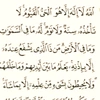 اللَّهُ لَا إِلَٰهَ إِلَّا هُوَ الْحَيُّ الْقَيُّومُ لَا
تَأْخُذُهُ سِنَةٌ وَلَا نَوْمٌ لَهُ مَا فِي السَّمَوَاتِ
وَمَا فِي الْأَرْضِ مَنْ ذَا الَّذِي يَشْفَعُ عِنْدَهُ
إِلَّا بِإِذْنِهِ يَعْلَمُ مَا بَيْنَ أَيْدِيهِمْ وَمَا خَلْفَهُمْ
وَلَا يُحِيطُونَ بِشَيْءٍ مِنْ عِلْمِهِ إِلَّا بِمَا شَاءَ